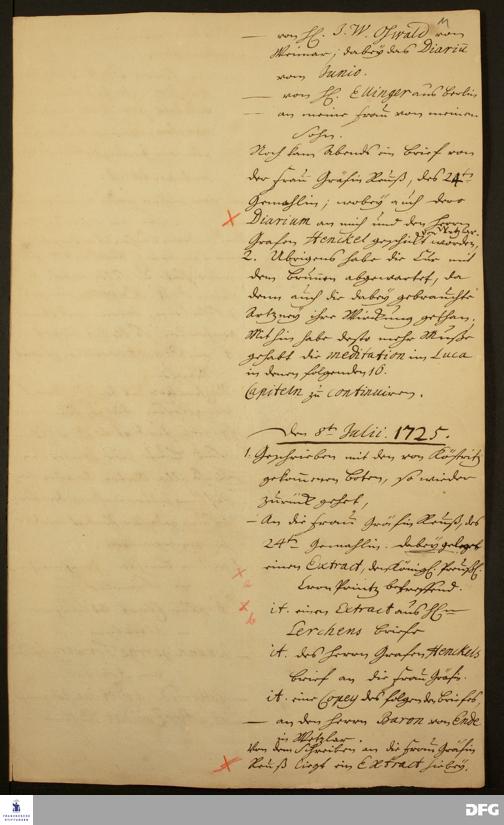 — von H. J. W. Oswald von
Weimar; dabey das Diariū
vom Junio.
— von H. Ellinger aus Berlin
— an meine Frau von meinem
Sohn.
Noch kam Abends ein Brief von
der Frau Gräfin Reuß, des 24ten
Gemahlin; wobey auch dero
Diarium an mich und den Herrn
Grafen Henckel geschickt worden,
2. Ubrigens habe die Cur mit
dem Brunnen abgewartet, da
denn auch die dabey gebrauchte
Artzney ihre Wirckung gethan.
Mithin habe desto mehr Muße
gehabt die meditation im Luca
in denen folgenden 16.
Capiteln zu continuiren.
Den 8ten Julii. 1725.
1. Geschrieben mit den von Köstritz
gekommenen Boten, so wieder
zurück gehet,
— An die Frau Gräfin Reuß, des
24ten Gemahlin. dabey geleget
einen Extract, den Königl. Preußl.
von Printz betreffend.
a
it. einen Extract aus H.
b
Lerchens Briefe
it. des Herrn Grafen Henckels
Brief an die Frau Gräfin.
it. eine Copey des folgenden Briefes,
— an den Herrn Baron von Ende
in Wetzlar.
Von dem Schreiben an die Frau Gräfin
Reuß liegt ein Extract hiebey.
FRANCKESCHE
STIFTUNGEN
DFG